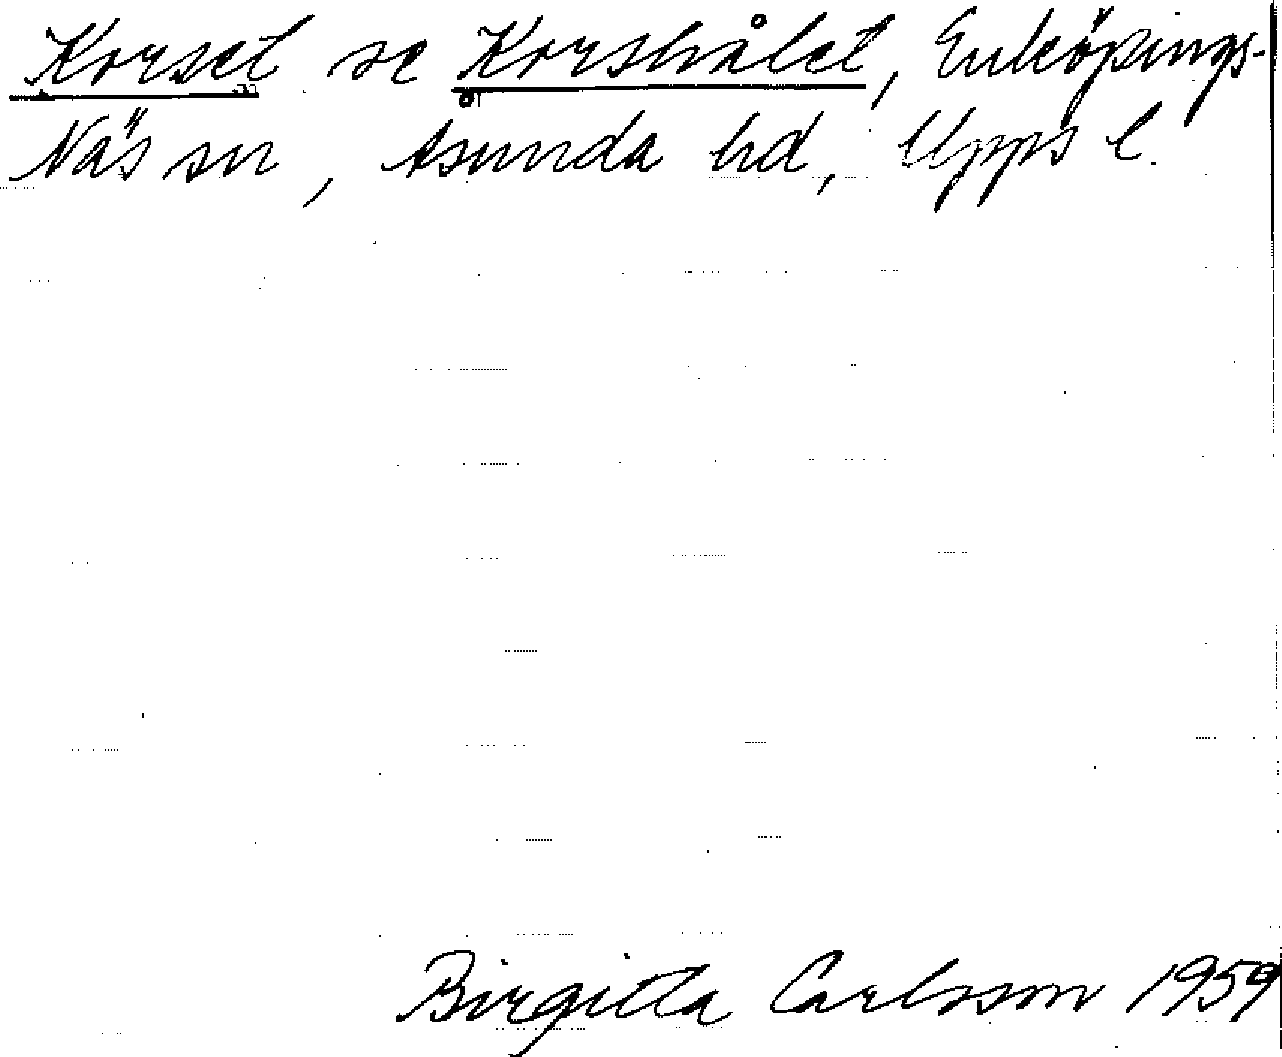 Korset se Korshålet, Enköpings-
Näs sn, Åsunda hd, Upps l.
Birgitta Carlsson 1959